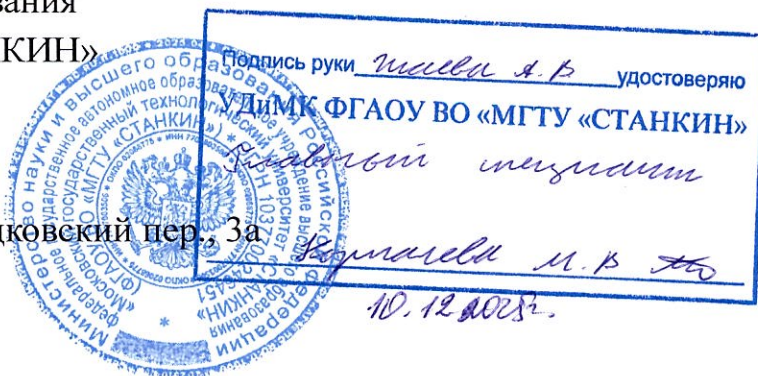 вания
НКИН»
дковский пер., 3а
Подпись руки А. В. удостоверяю
УДиМК ФГАОУ ВО «МГТУ «СТАНКИН»
Главный специалист
М. В.
10.12.2025г.
Министерство науки и высшего образования Российской Федерации
федеральное государственное автономное образовательное учреждение высшего образования
«Московский государственный технологический университет «СТАНКИН»
(ФГАОУ ВО «МГТУ «СТАНКИН»)